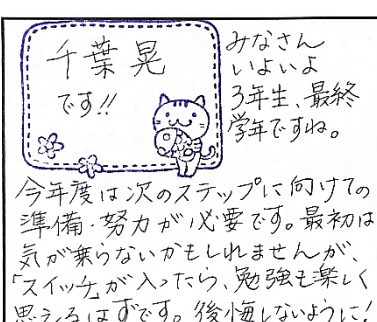 千葉晃
です!!
みなさん
いよいよ
3年生、最終
学年ですね。
今年度は次のステップに向けての
準備・努力が必要です。最初は
気が乗らないかもしれませんが、
「スイッチ」が入ったら、勉強も楽しく
思えるはずです。後悔しないように!